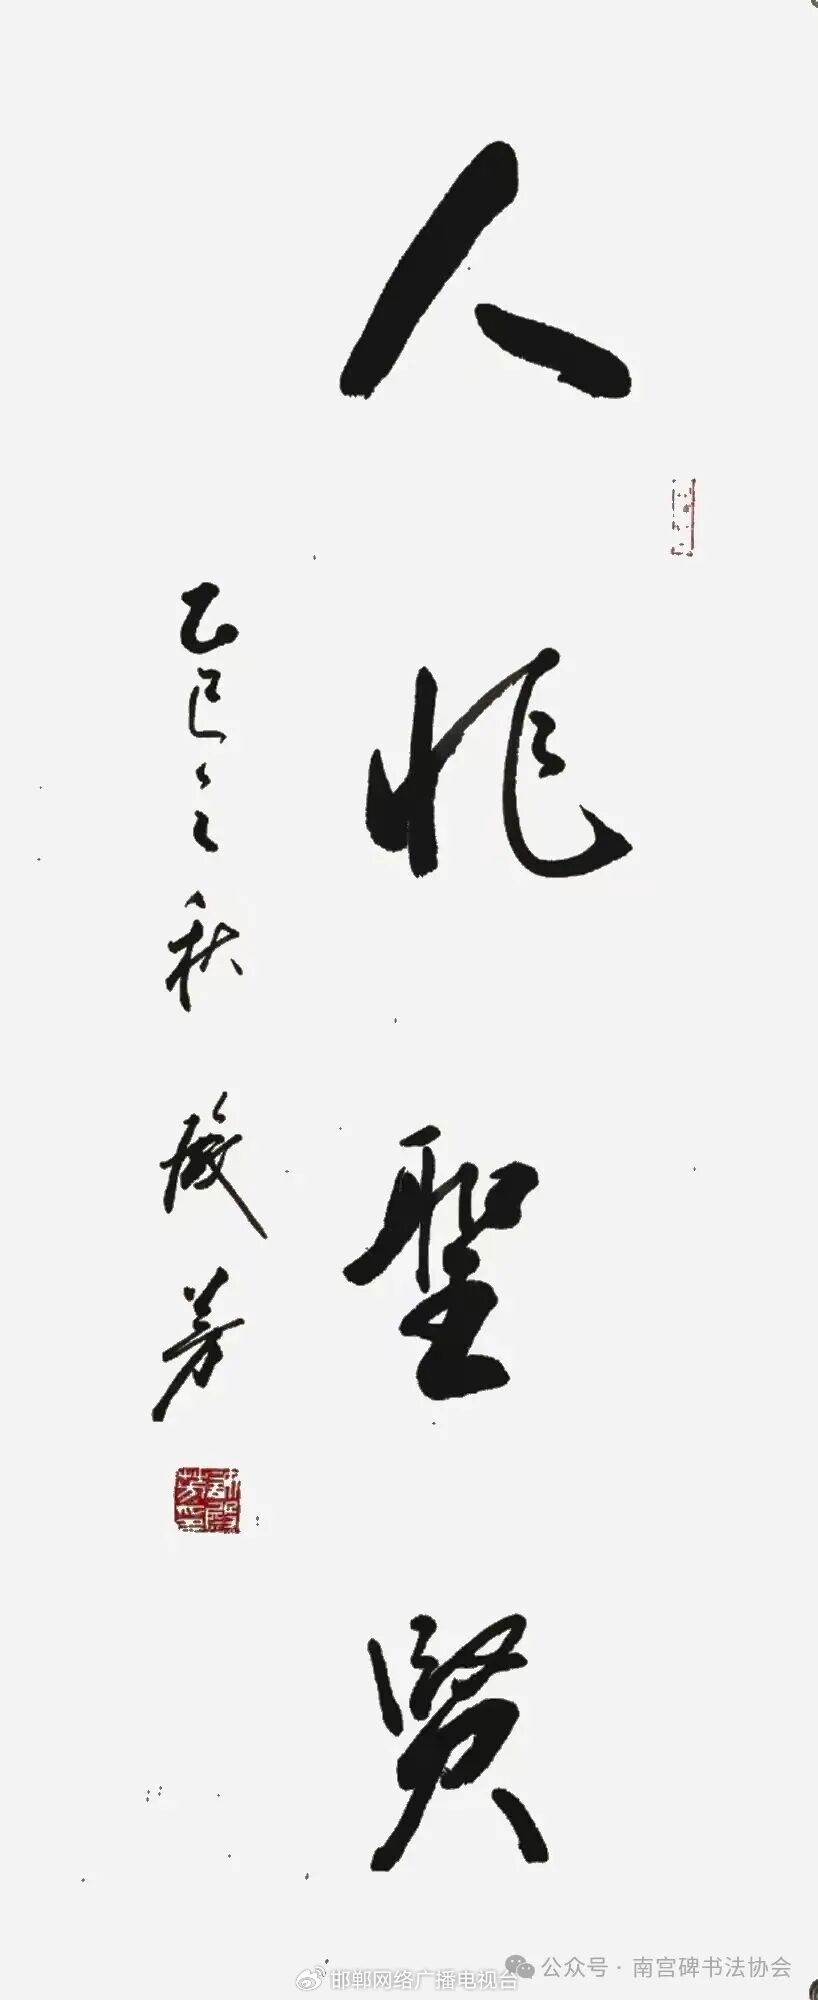 人非聖賢
乙巳之秋 啟芳
邯郸网络广播电视台
公众号·南宫碑书法协会